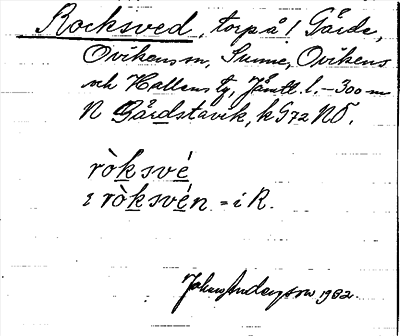 Rocksved, torp å / Gärde,
Ovikens sn, Sunne, Ovikens
och Hallens tg, Jämtl. l. – 300 m
N Gärdstavik, k 972 NÖ.
ròksvé
i ròksvén = i R.
Johns Andersson 1932